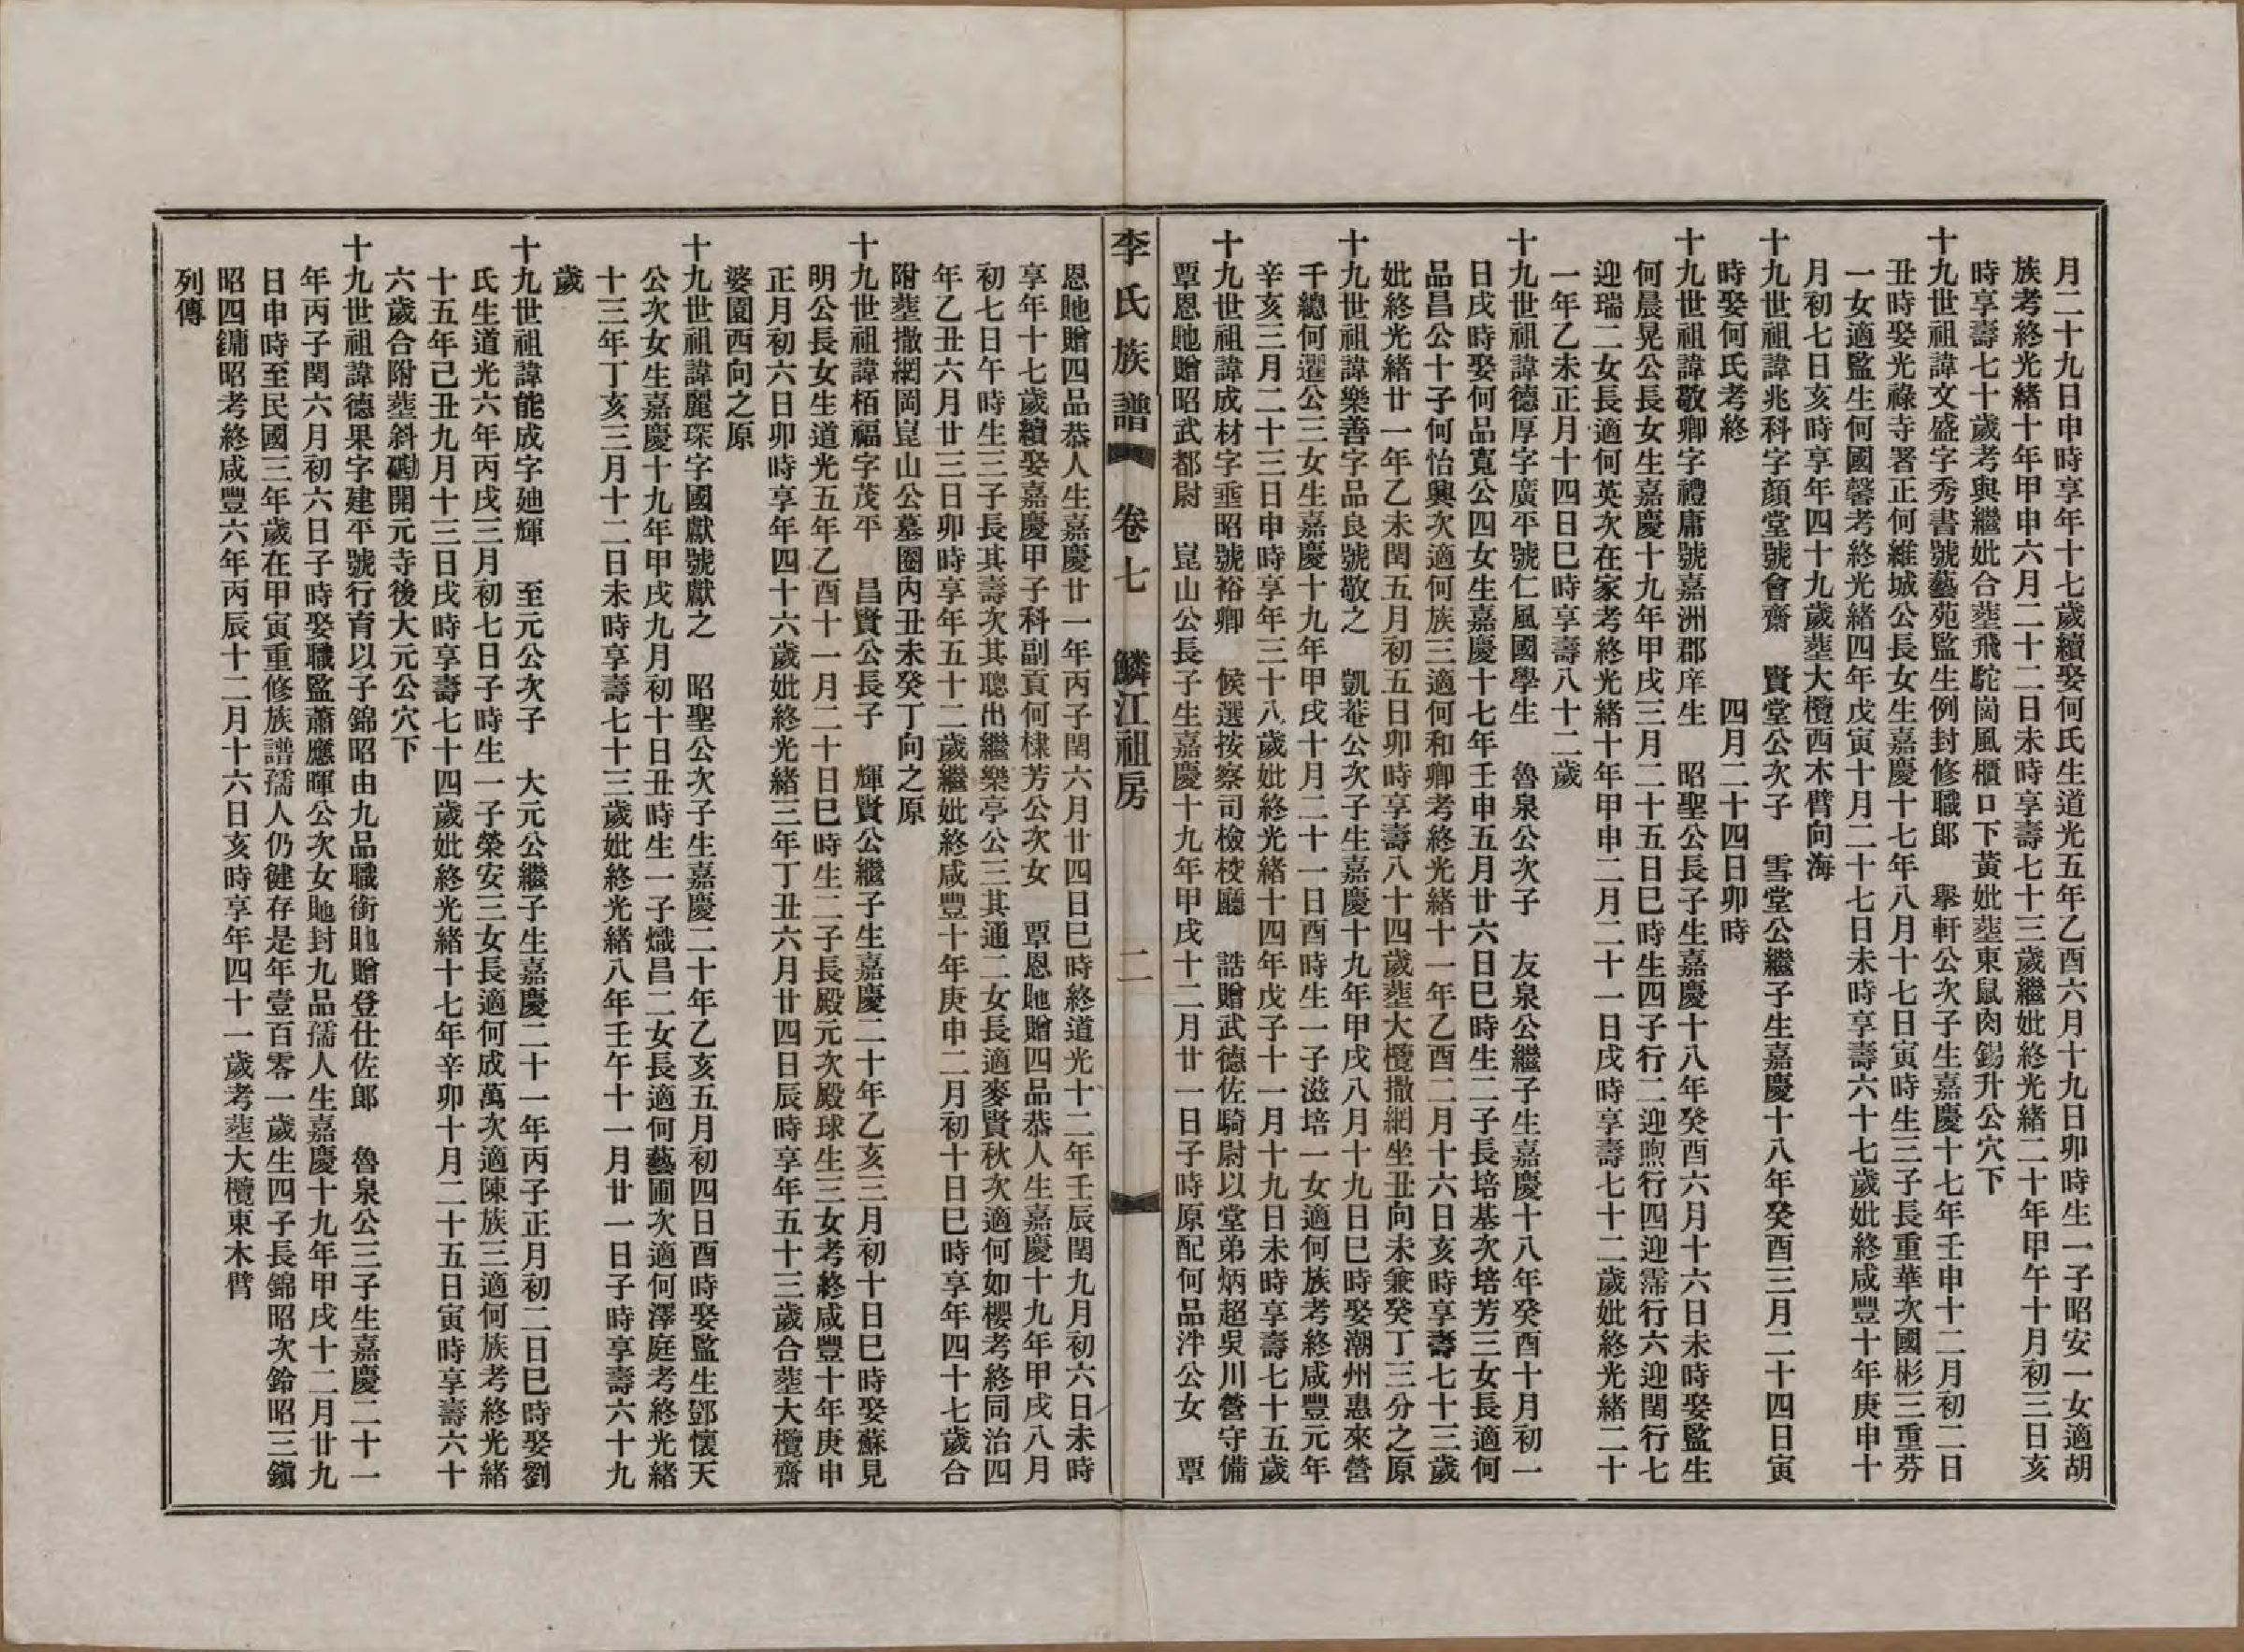 月二十九日申時享年十七歲續娶何氏生道光五年乙酉六月十九日卯時生一子昭安一女適胡
族考終光緒十年甲申六月二十二日未時享壽七十三歲繼妣終光緒二十年甲午十月初三日亥
時享壽七十歲考與繼妣合塟飛駝崗風櫃口下黃妣塟東鼠肉錫升公穴下
十九世祖諱文盛字秀書號藝苑監生例封修職郎　舉軒公次子生嘉慶十七年壬申十二月初二日
丑時娶光祿寺署正何維城公長女生嘉慶十七年八月十七日寅時生三子長重華次國彬三重芬
一女適監生何國馨考終光緒四年戊寅十月二十七日未時享壽六十七歲妣終咸豐十年庚申十
月初七日亥時享年四十九歲塟大欖西木臂向海
十九世祖諱兆科字顏堂號會齋　賢堂公次子　雪堂公繼子生嘉慶十八年癸酉三月二十四日寅
時娶何氏考終　　　　　　　　四月二十四日卯時
十九世祖諱敬卿字禮庸號嘉洲郡庠生　昭聖公長子生嘉慶十八年癸酉六月十六日未時娶監生
何晨晃公長女生嘉慶十九年甲戌三月二十五日巳時生四子行二迎煦行四迎霈行六迎閏行七
迎瑞二女長適何英次在家考終光緒十年甲申二月二十一日戌時享壽七十二歲妣終光緒二十
一年乙未正月十四日巳時享壽八十二歲
十九世祖諱德厚字廣平號仁風國學生　魯泉公次子　友泉公繼子生嘉慶十八年癸酉十月初一
日戌時娶何品寬公四女生嘉慶十七年壬申五月廿六日巳時生二子長培基次培芳三女長適何
品昌公十子何怡興次適何族三適何和卿考終光緒十一年乙酉二月十六日亥時享壽七十三歲
妣終光緒廿一年乙未閏五月初五日卯時享壽八十四歲塟大欖撒網坐丑向未兼癸丁三分之原
十九世祖諱樂善字品良號敬之　凱菴公次子生嘉慶十九年甲戌八月十九日巳時娶潮州惠來營
千總何選公三女生嘉慶十九年甲戌十月二十一日酉時生一子滋培一女適何族考終咸豐元年
辛亥三月二十三日申時享年三十八歲妣終光緒十四年戊子十一月十九日未時享壽七十五歲
十九世祖諱成材字垂昭號裕卿　候選按察司檢校廳　誥贈武德佐騎尉以堂弟炳超吳川營守備
覃恩貤贈昭武都尉　崑山公長子生嘉慶十九年甲戌十二月廿一日子時原配何品泮公女　覃
李氏族譜　卷七　鱗江祖房　二
恩貤贈四品恭人生嘉慶廿一年丙子閏六月廿四日巳時終道光十二年壬辰閏九月初六日未時
享年十七歲續娶嘉慶甲子科副貢何棣芳公次女　覃恩貤贈四品恭人生嘉慶十九年甲戌八月
初七日午時生三子長其壽次其聰出繼樂亭公三其通二女長適麥賢秋次適何如櫻考終同治四
年乙丑六月廿三日卯時享年五十二歲繼妣終咸豐十年庚申二月初十日巳時享年四十七歲合
附塟撒網岡崑山公墓圈內丑未癸丁向之原
十九世祖諱栢福字茂平　昌賢公長子　輝賢公繼子生嘉慶二十年乙亥三月初十日巳時娶蘇見
明公長女生道光五年乙酉十一月二十日巳時生二子長殿元次殿球生三女考終咸豐十年庚申
正月初六日卯時享年四十六歲妣終光緒三年丁丑六月廿四日辰時享年五十三歲合塟大欖齋
婆園西向之原
十九世祖諱麗琛字國獻號獻之　昭聖公次子生嘉慶二十年乙亥五月初四日酉時娶監生鄧懷天
公次女生嘉慶十九年甲戌九月初十日丑時生一子熾昌二女長適何藝圃次適何澤庭考終光緒
十三年丁亥三月十二日未時享壽七十三歲妣終光緒八年壬午十一月廿一日子時享壽六十九
歲
十九世祖諱能成字廸輝　至元公次子　大元公繼子生嘉慶二十一年丙子正月初二日巳時娶劉
氏生道光六年丙戌三月初七日子時生一子榮安三女長適何成萬次適陳族三適何族考終光緒
十五年己丑九月十三日戌時享壽七十四歲妣終光緒十七年辛卯十月二十五日寅時享壽六十
六歲合附塟斜磡開元寺後大元公穴下
十九世祖諱德果字建平號行育以子錦昭由九品職銜貤贈登仕佐郎　魯泉公三子生嘉慶二十一
年丙子閏六月初六日子時娶職監蕭應暉公次女貤封九品孺人生嘉慶十九年甲戌十二月廿九
日申時至民國三年歲在甲寅重修族譜孺人仍健存是年壹百零一歲生四子長錦昭次鈴昭三鎮
昭四鏞昭考終咸豐六年丙辰十二月十六日亥時享年四十一歲考塟大欖東木臂
列傳